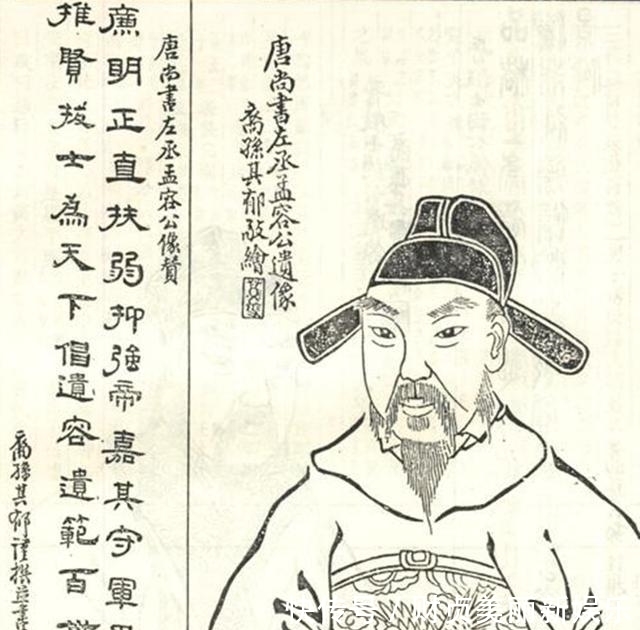 唐尚書左丞孟容公遺像
裔孫其郁敬繪
唐尚書左丞孟容公像贊
廉明正直扶弱抑強帝嘉其守軍
推賢拔士為天下倡遺容遺範百
裔孫其郁謹撰並書
快传号